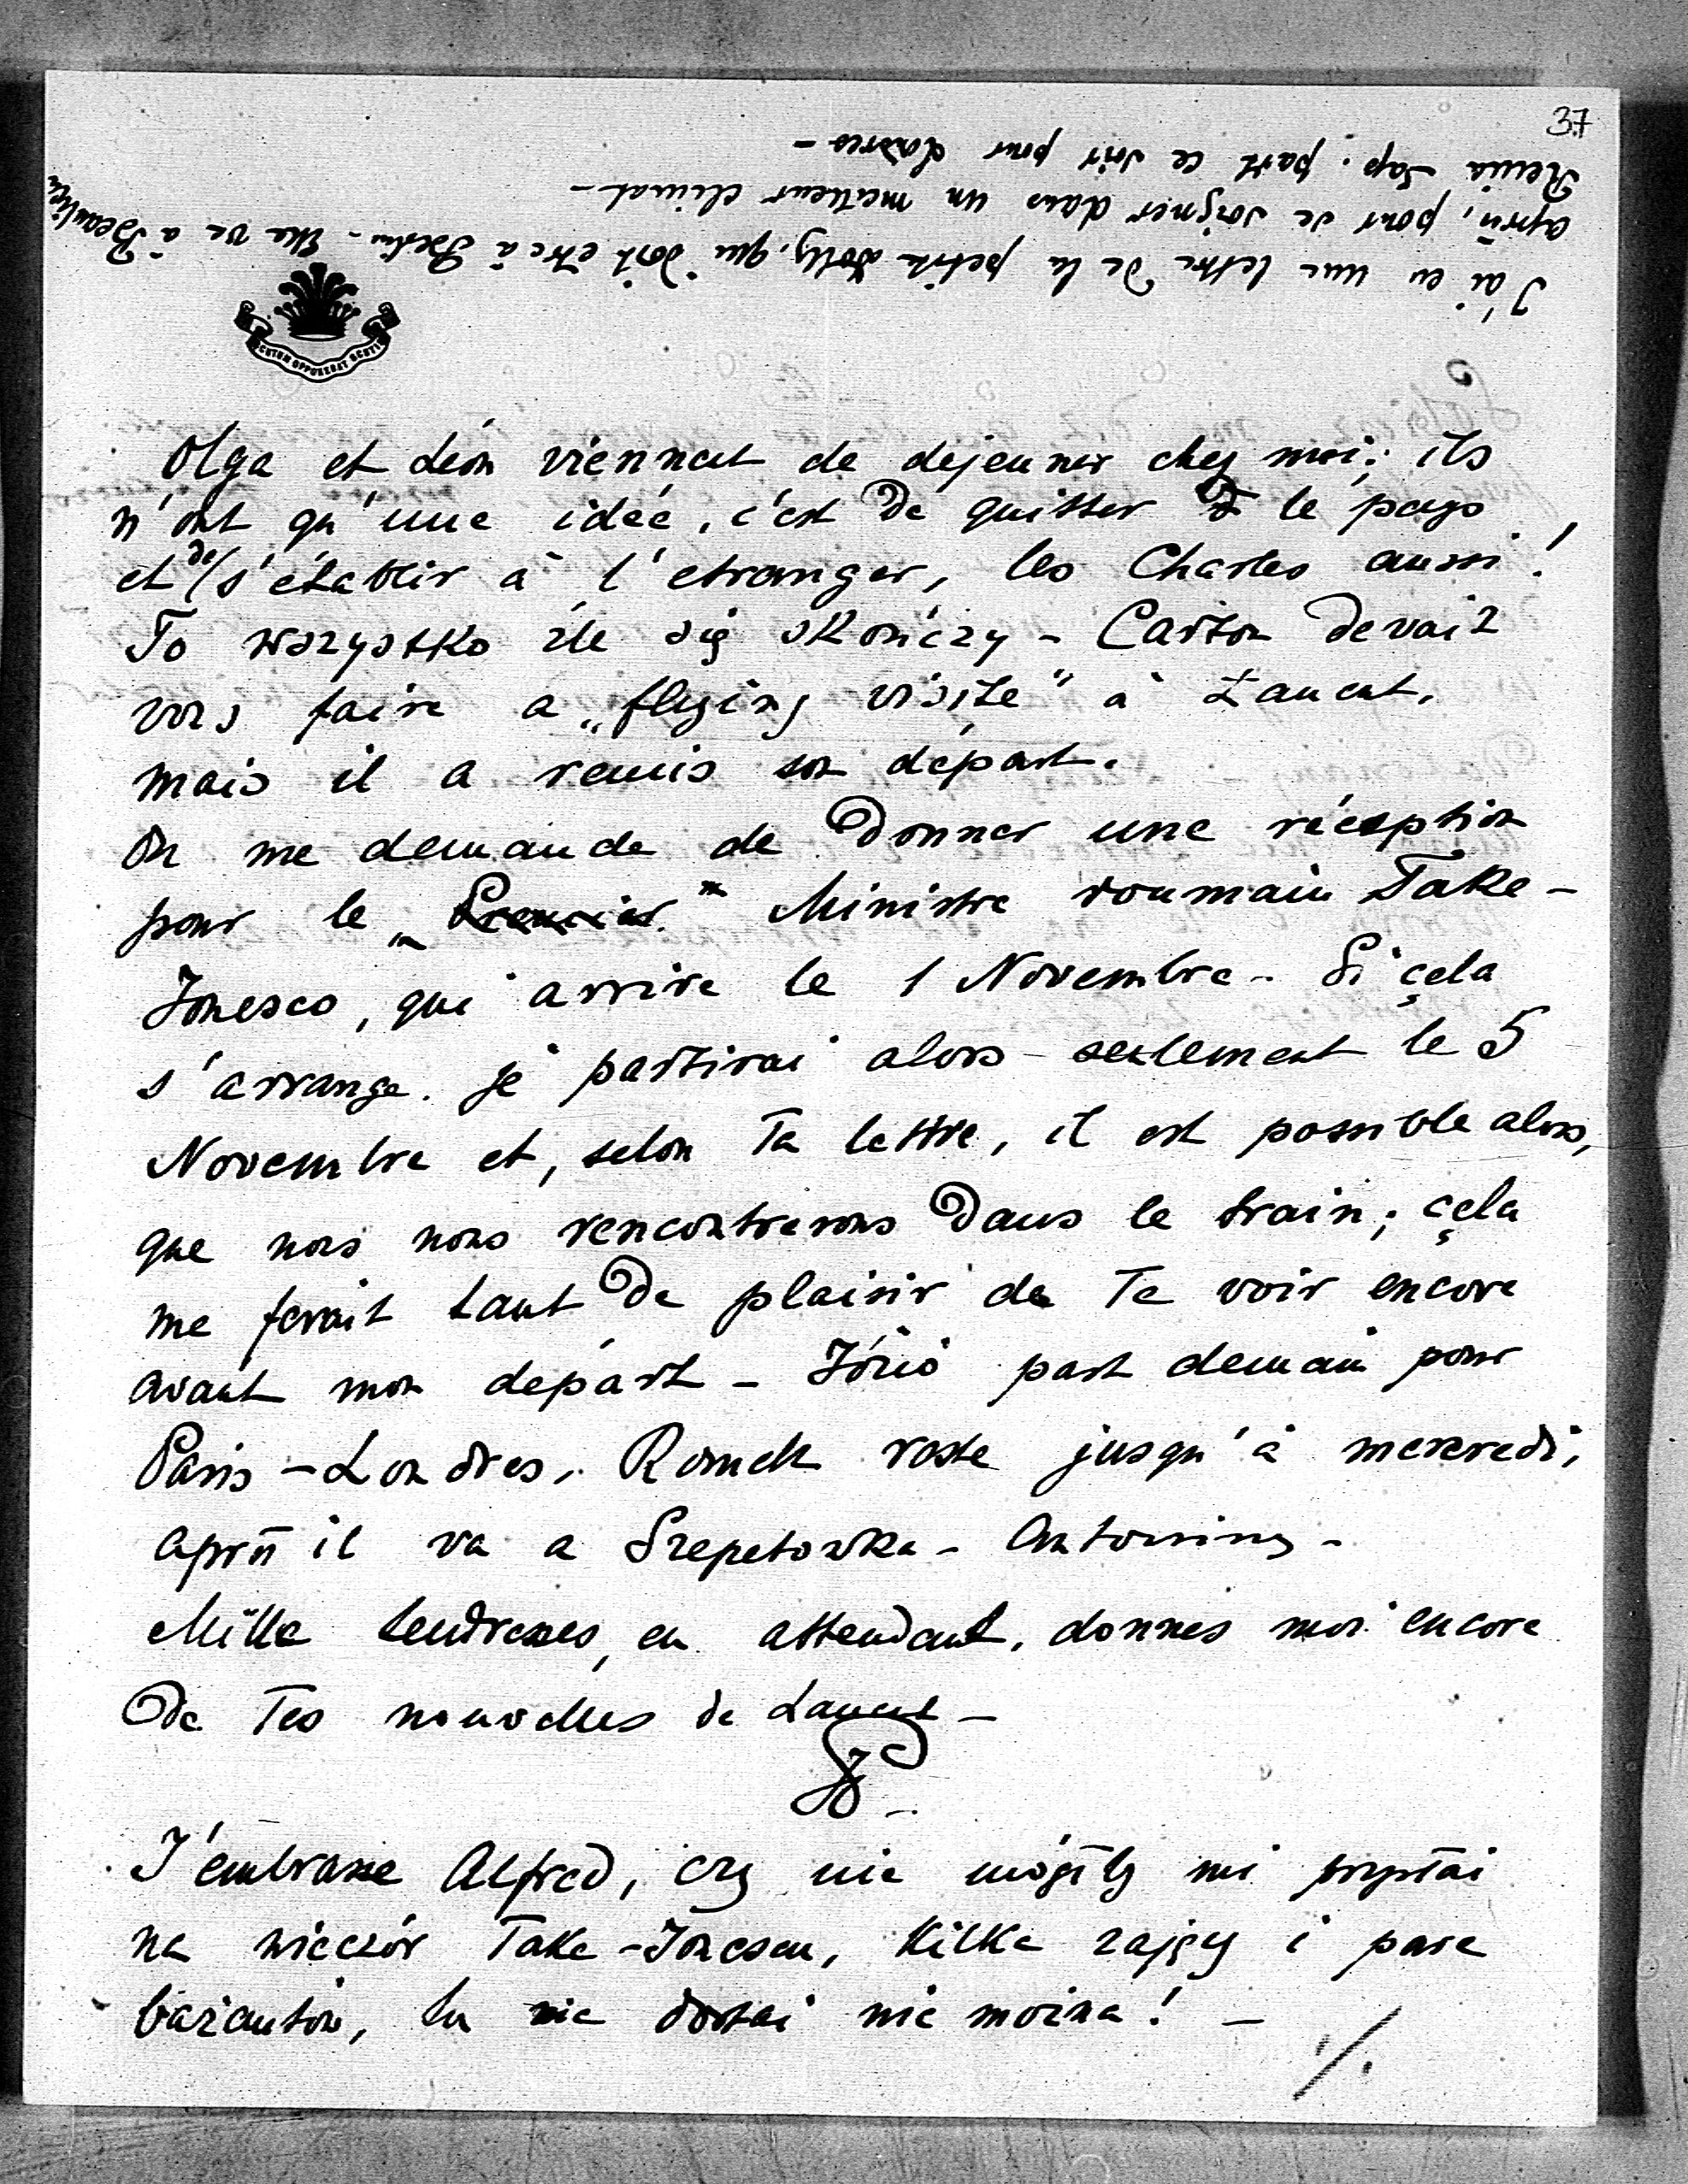 37
J'ai eu une lettre de la petite Dolly, qui doit être à Berlin. Elle va à Beaulieu
après, pour se soigner dans un meilleur climat –
Renia Sap. part ce soir pour Londres –
SCUTUM OPPONEBAT SCUTIS
Olga et Léon viennent de dejeuner chez moi; ils
n'ont qu'une idée, c'est de quitter le pays
et de s'établir à l'etranger, les Charles aussi!
To wszystko źle się skończy – Carton devait
vous faire a „flying visite" à Łancut,
mais il a remis son départ.
On me demande de donner une réception
pour le „Premier" Ministre roumain Take-
Jonesco, qui arrive le 1 Novembre – Si çela
s'arrange. je partirai alors seulement le 5
Novembre et, selon Ta lettre, il est possible alors,
que nous nous rencontrerons dans le train; çela
me ferait tant de plaisir de Te voir encore
avant mon départ – Józio part demain pour
Paris – Londres, Romek reste jusqu'à mercredi,
après il va a Szepetowka – Antoniny –
Mille tendresses, en attendant, donnes moi encore
de Tes nouvelles de Lancut –
J'embrasse Alfred, czy nie mógłby mi przysłać
na wieczór Take-Jonescu, kilka zajęcy i pare
bażantów, tu nic dostać nie można! –
./.